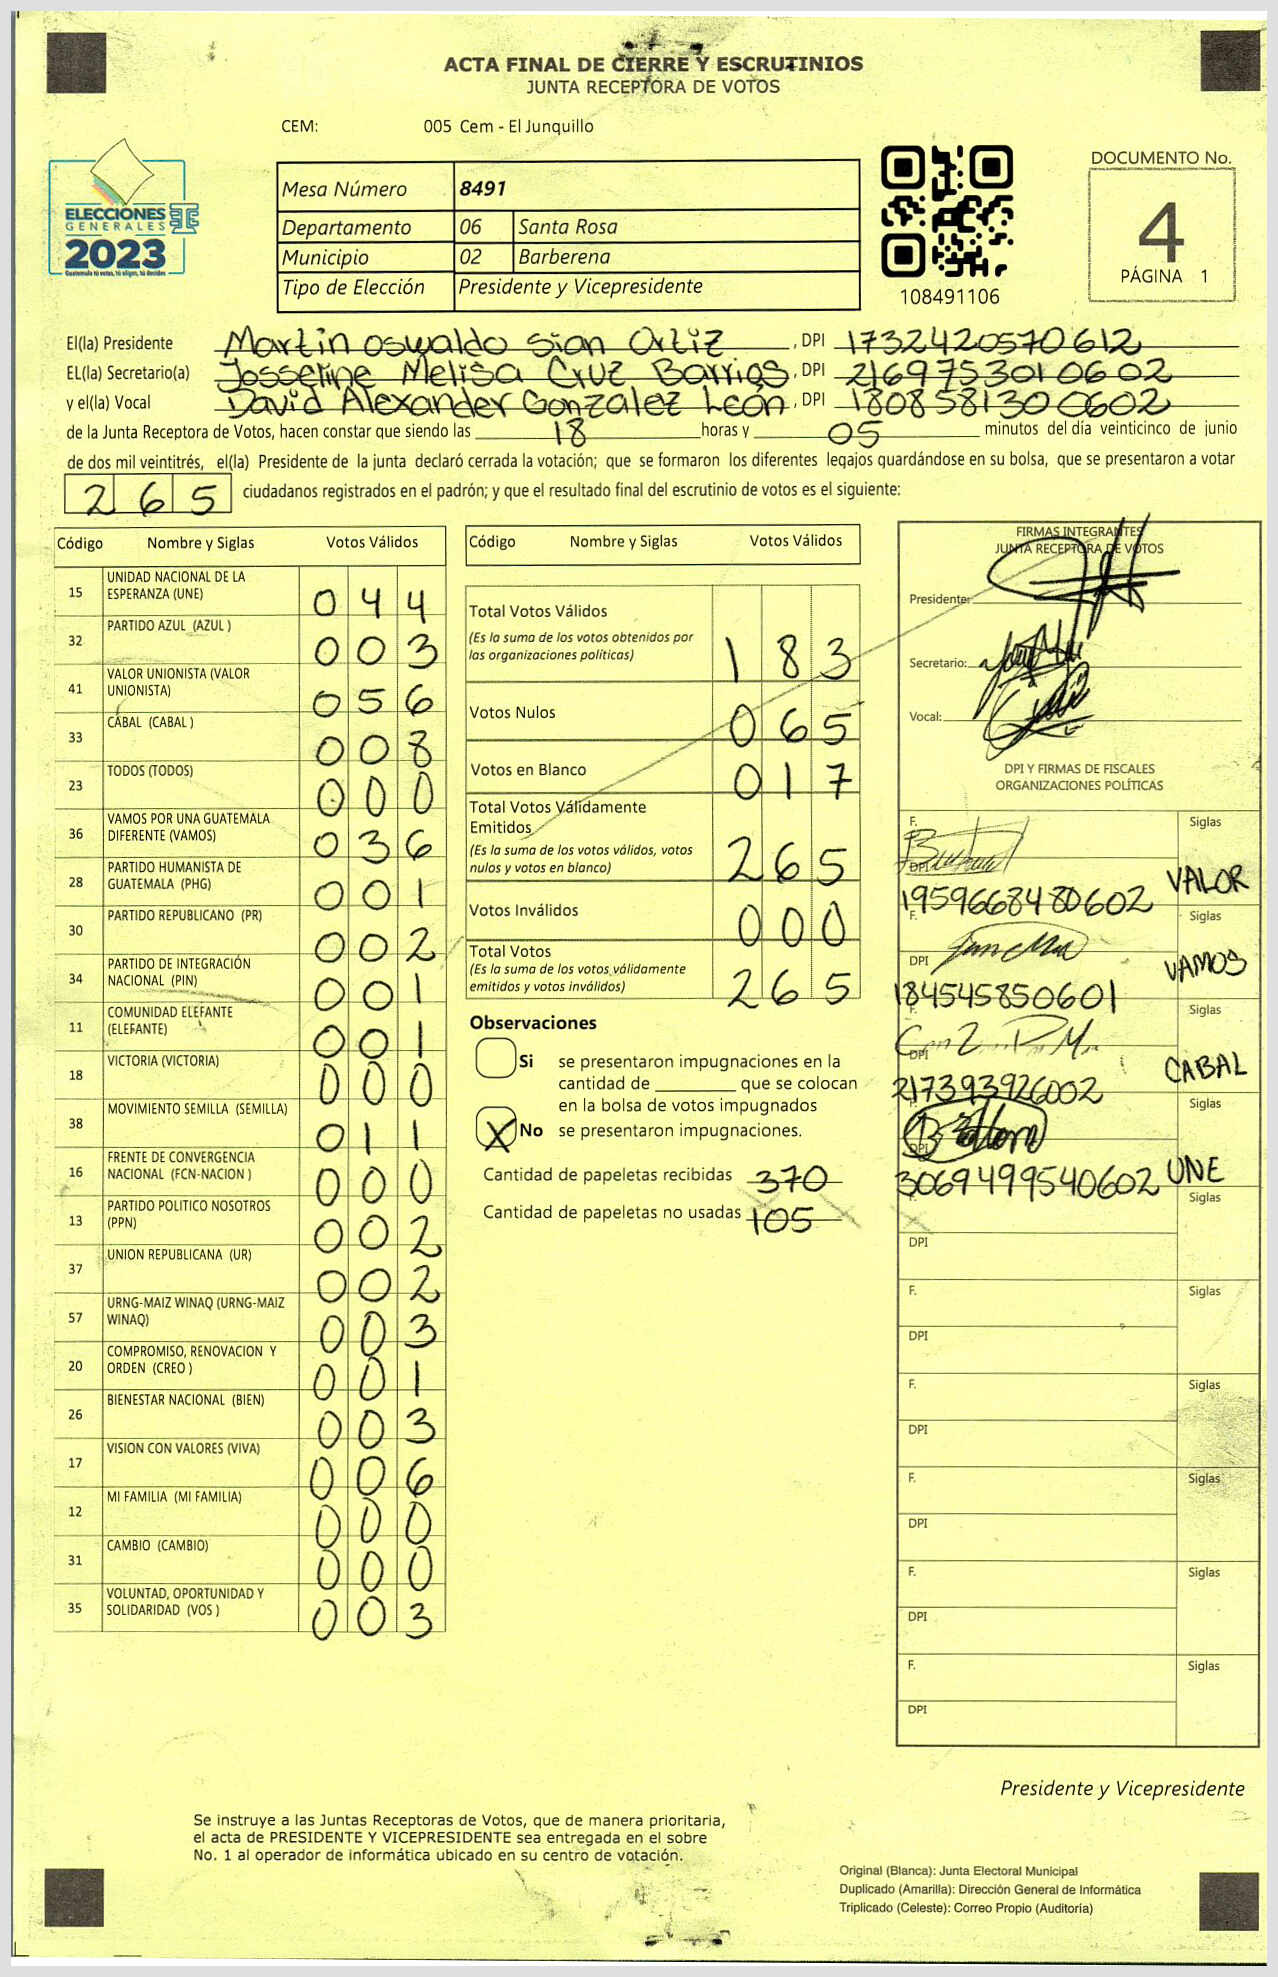 ACTA FINAL DE CIERRE Y ESCRUTINIOS
JUNTA RECEPTORA DE VOTOS
CEM: 005 Cem - El Junquillo
ELECCIONES
GENERALES
2023
Guatemala tú votas, tú eliges, tú decides
Mesa Número 8491
Departamento 06 Santa Rosa
Municipio 02 Barberena
Tipo de Elección Presidente y Vicepresidente
108491106
DOCUMENTO No.
4
PÁGINA 1
El(la) Presidente Martin Oswaldo Sian Ortiz, DPI 1732420570612
EL(la) Secretario(a) Josseline Melisa Cruz Barrios, DPI 2169753010602
y el(la) Vocal David Alexander Gonzalez León, DPI 1808581300602
de la Junta Receptora de Votos, hacen constar que siendo las 18 horas y 05 minutos del día veinticinco de junio
de dos mil veintitrés, el(la) Presidente de la junta declaró cerrada la votación; que se formaron los diferentes legajos guardándose en su bolsa, que se presentaron a votar
265 ciudadanos registrados en el padrón; y que el resultado final del escrutinio de votos es el siguiente:
Código Nombre y Siglas Votos Válidos
15 UNIDAD NACIONAL DE LA ESPERANZA (UNE) 044
32 PARTIDO AZUL (AZUL ) 003
41 VALOR UNIONISTA (VALOR UNIONISTA) 056
33 CABAL (CABAL ) 008
23 TODOS (TODOS) 000
36 VAMOS POR UNA GUATEMALA DIFERENTE (VAMOS) 036
28 PARTIDO HUMANISTA DE GUATEMALA (PHG) 001
30 PARTIDO REPUBLICANO (PR) 002
34 PARTIDO DE INTEGRACIÓN NACIONAL (PIN) 001
11 COMUNIDAD ELEFANTE (ELEFANTE) 001
18 VICTORIA (VICTORIA) 000
38 MOVIMIENTO SEMILLA (SEMILLA) 011
16 FRENTE DE CONVERGENCIA NACIONAL (FCN-NACION ) 000
13 PARTIDO POLITICO NOSOTROS (PPN) 002
37 UNION REPUBLICANA (UR) 002
57 URNG-MAIZ WINAQ (URNG-MAIZ WINAQ) 003
20 COMPROMISO, RENOVACION Y ORDEN (CREO ) 001
26 BIENESTAR NACIONAL (BIEN) 003
17 VISION CON VALORES (VIVA) 006
12 MI FAMILIA (MI FAMILIA) 000
31 CAMBIO (CAMBIO) 000
35 VOLUNTAD, OPORTUNIDAD Y SOLIDARIDAD (VOS ) 003
Código Nombre y Siglas Votos Válidos
Total Votos Válidos 183
(Es la suma de los votos obtenidos por
las organizaciones políticas)
Votos Nulos 065
Votos en Blanco 017
Total Votos Válidamente
Emitidos 265
(Es la suma de los votos válidos, votos
nulos y votos en blanco)
Votos Inválidos 000
Total Votos 265
(Es la suma de los votos válidamente
emitidos y votos inválidos)
Observaciones
Si se presentaron impugnaciones en la
cantidad de ________ que se colocan
en la bolsa de votos impugnados
X No se presentaron impugnaciones.
Cantidad de papeletas recibidas 370
Cantidad de papeletas no usadas 105
FIRMAS INTEGRANTES
JUNTA RECEPTORA DE VOTOS
Presidente:
Secretario:
Vocal:
DPI Y FIRMAS DE FISCALES
ORGANIZACIONES POLÍTICAS
F. Siglas
DPI 1959668480602 VALOR
F. Siglas
DPI 184545850601 VAMOS
F. Siglas
DPI 217393926002 CABAL
F. Siglas
DPI 3069499540602 UNE
F. Siglas
DPI
F. Siglas
DPI
F. Siglas
DPI
F. Siglas
DPI
F. Siglas
DPI
F. Siglas
DPI
Presidente y Vicepresidente
Se instruye a las Juntas Receptoras de Votos, que de manera prioritaria,
el acta de PRESIDENTE Y VICEPRESIDENTE sea entregada en el sobre
No. 1 al operador de informática ubicado en su centro de votación.
Original (Blanca): Junta Electoral Municipal
Duplicado (Amarilla): Dirección General de Informática
Triplicado (Celeste): Correo Propio (Auditoría)